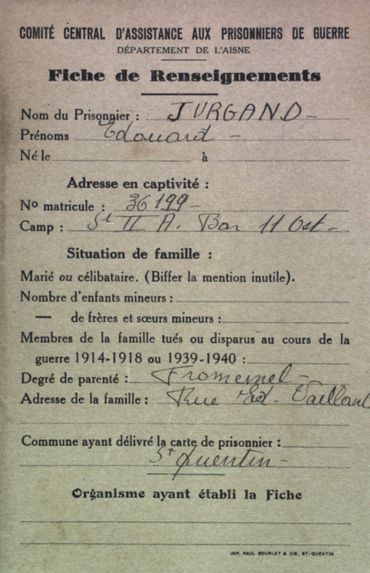 COMITÉ CENTRAL D'ASSISTANCE AUX PRISONNIERS DE GUERRE
DÉPARTEMENT DE L'AISNE
Fiche de Renseignements
Nom du Prisonnier : JURGAND -
Prénoms Edouard -
Né le à
Adresse en captivité :
No matricule : 36199 -
Camp : St II A. Bar 11 Ost -
Situation de famille :
Marié ou célibataire. (Biffer la mention inutile).
Nombre d'enfants mineurs :
— de frères et sœurs mineurs :
Membres de la famille tués ou disparus au cours de la
guerre 1914-1918 ou 1939-1940 :
Degré de parenté :
Adresse de la famille : Rue Ed. Vaillant
Commune ayant délivré la carte de prisonnier :
St Quentin -
Organisme ayant établi la Fiche
IMP. PAUL BOURLET & CIE, ST-QUENTIN